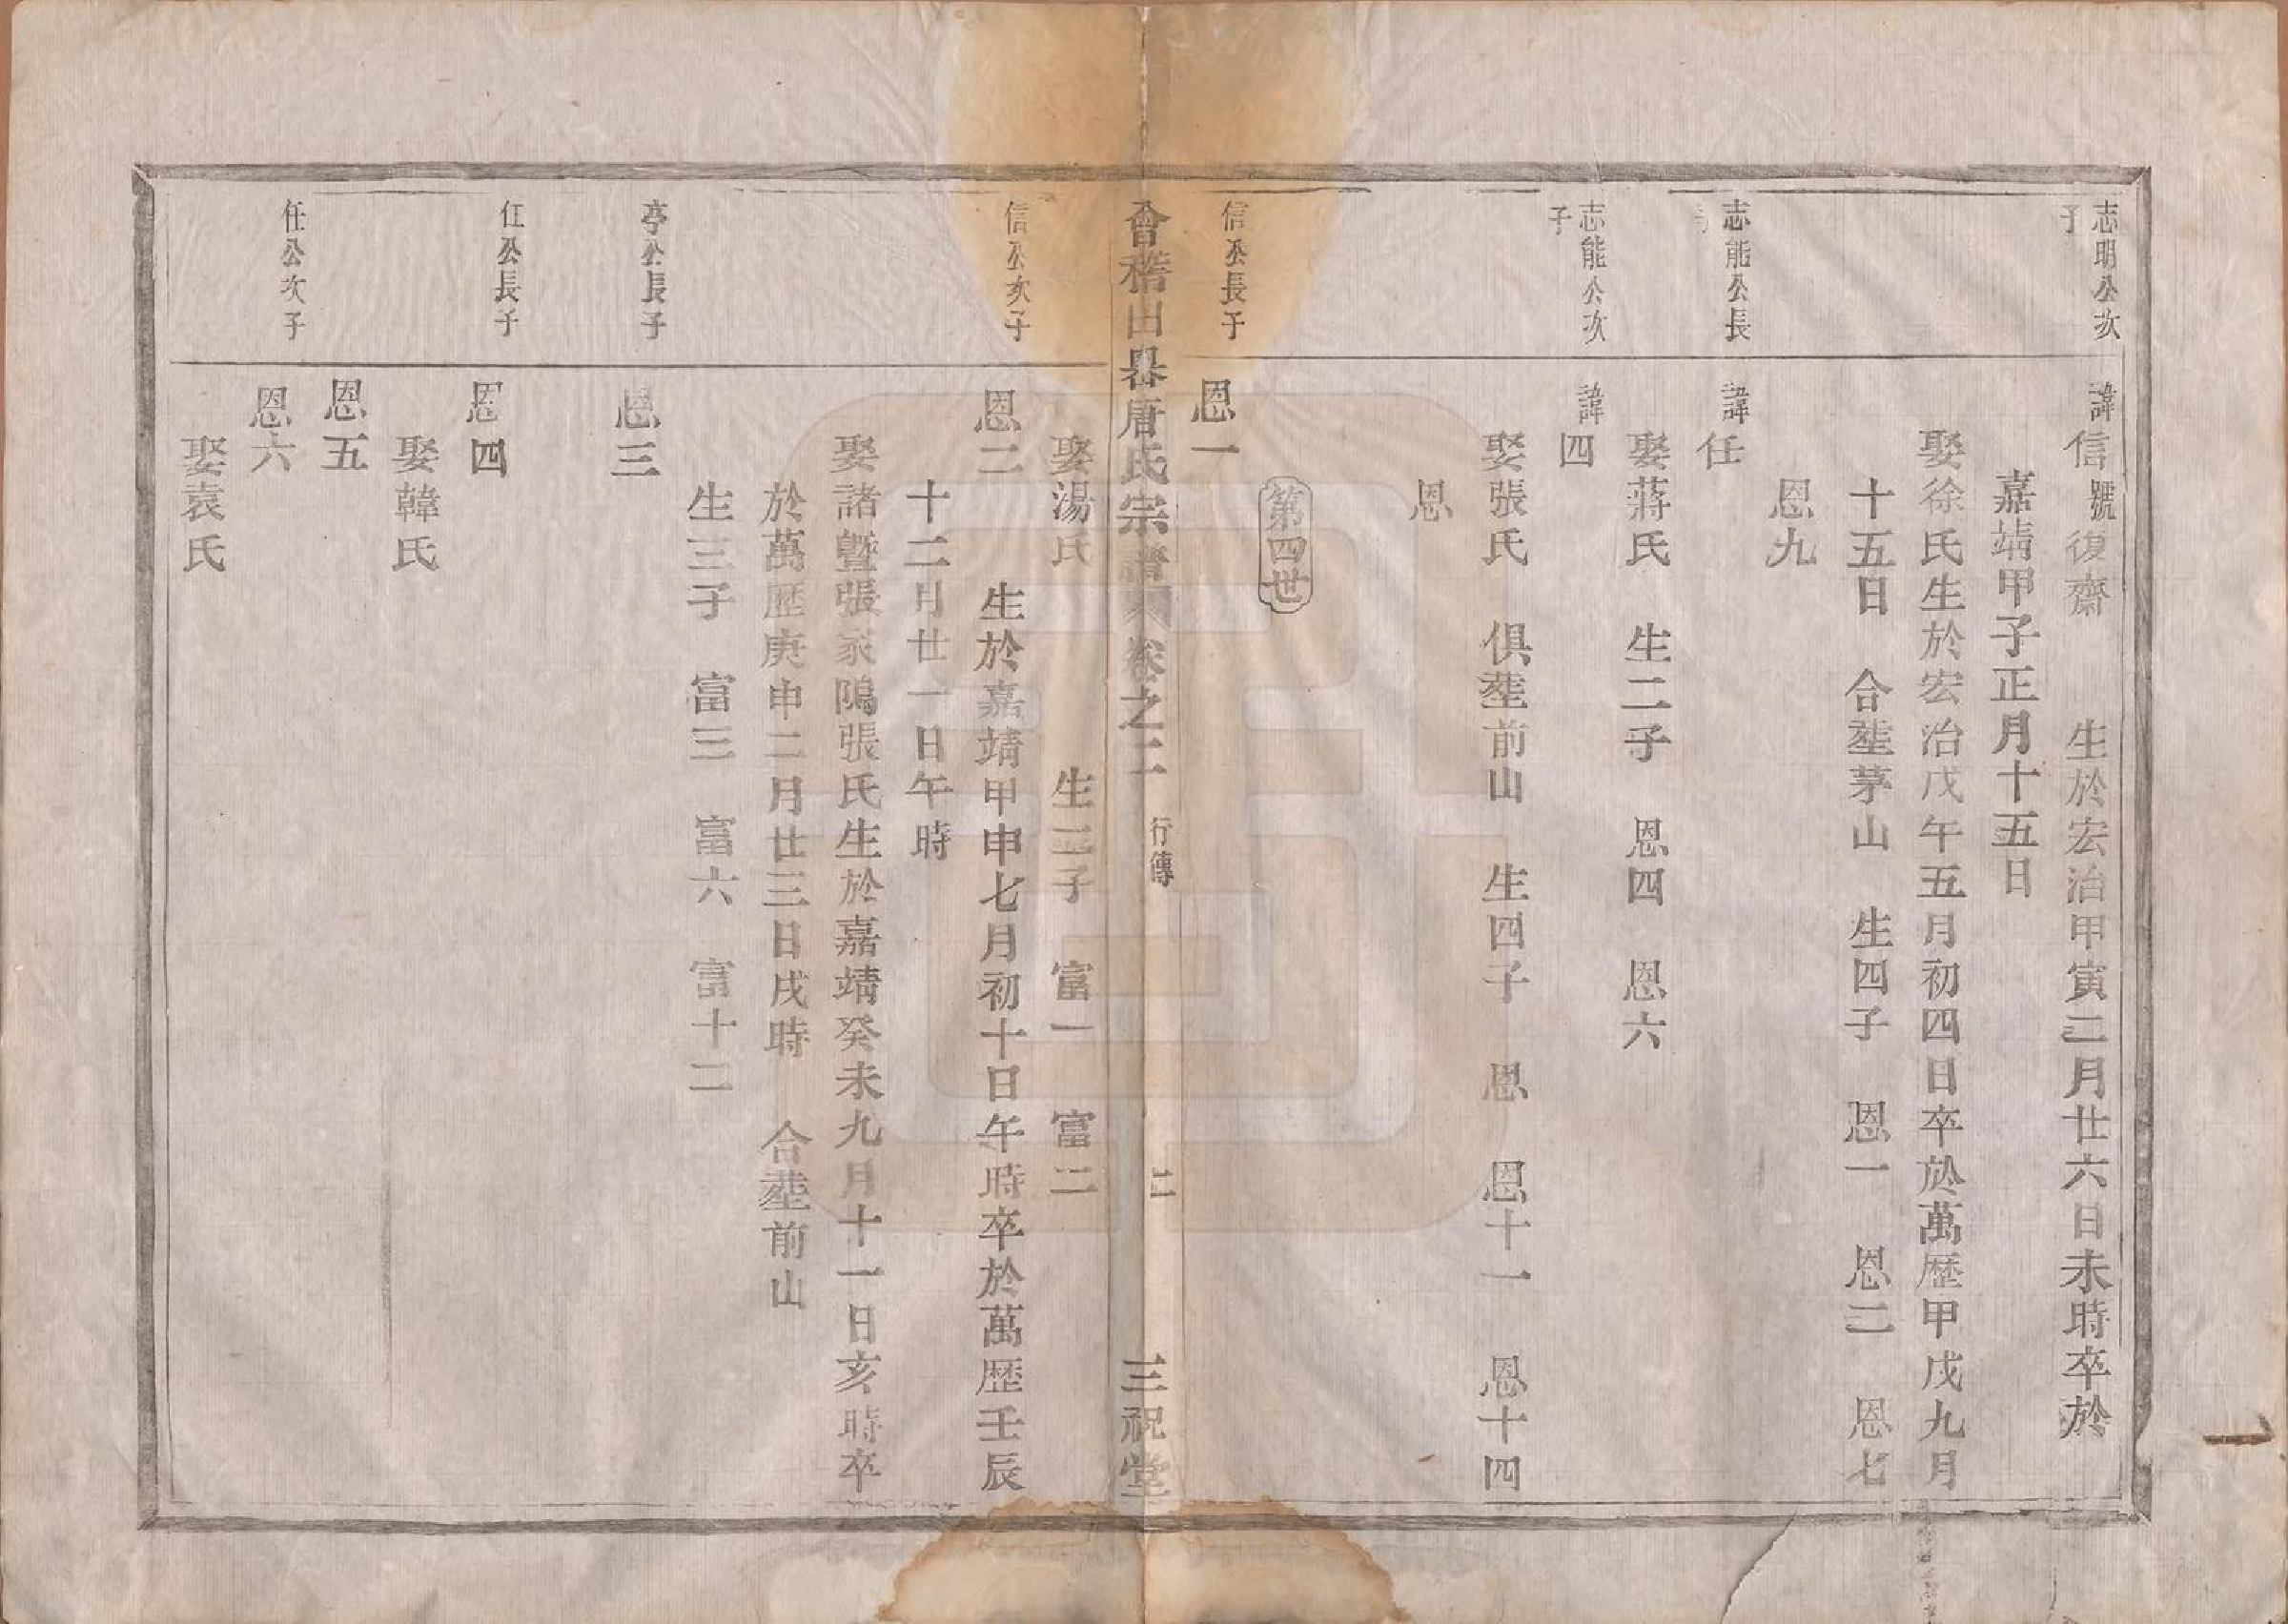 志明公次
子
諱信號復齋　生於宏治甲寅二月廿六日未時卒於
嘉靖甲子正月十五日
娶徐氏生於宏治戊午五月初四日卒於萬歷甲戌九月
十五日　合塟茅山　生四子　恩一　恩二　恩七
恩九
志能公長
子
諱任
娶蔣氏　生二子　恩四　恩六
志能公次
子
諱四
娶張氏　俱塟前山　生四子　恩　恩十一　恩十四
恩
第四世
信公長子
恩一
會稽田㟁唐氏宗譜　卷之二　行傳　二　三祝堂
娶湯氏　生二子　富一　富二
信公次子
恩二　生於嘉靖甲申七月初十日午時卒於萬歷壬辰
十二月廿一日午時
娶諸曁張家隖張氏生於嘉靖癸未九月十一日亥時卒
於萬歷庚申二月廿三日戌時　合塟前山
生三子　富三　富六　富十二
亭公長子
恩三
任公長子
恩四
娶韓氏
恩五
任公次子
恩六
娶袁氏